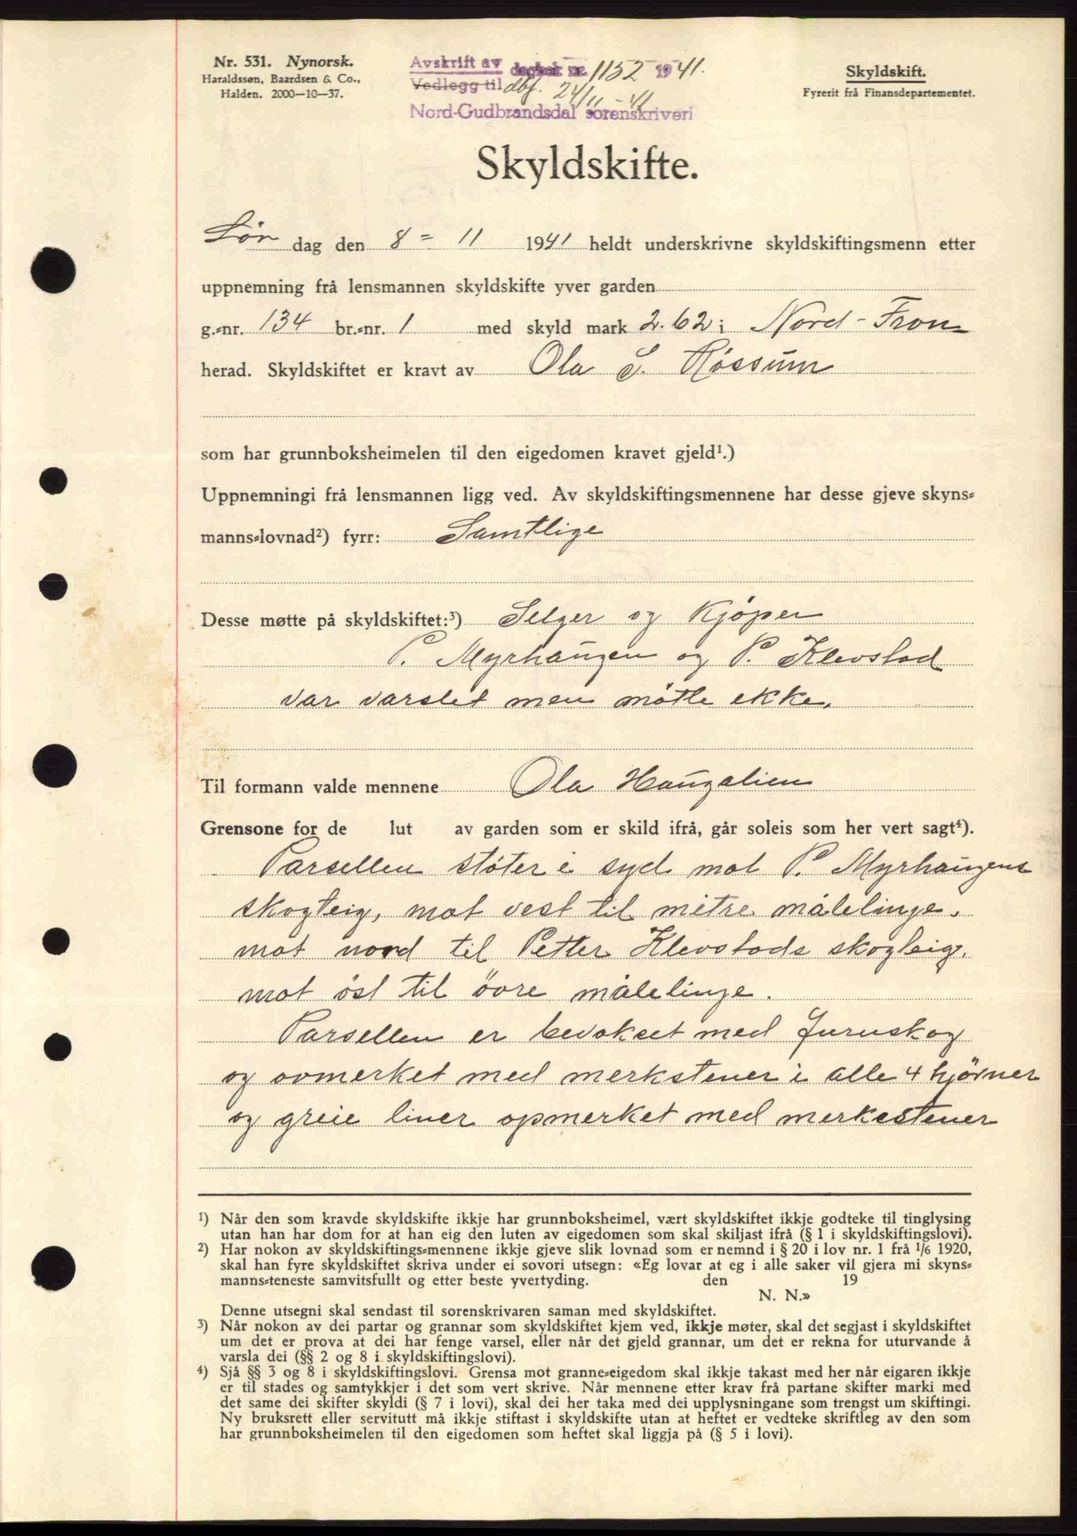 Nr. 531. Nynorsk.
Haraldssen, Baardsen & Co.,
Halden. 2000-10-37.
Avskrift av dagbok nr. 1152 1941.
Vedlegg til dbf. 24/11-41
Nord-Gudbrandsdal sorenskriveri
Skyldskift.
Fyrerit frå Finansdepartementet.
Skyldskifte.
Lør dag den 8 = 11 1941 heldt underskrivne skyldskiftingsmenn etter
uppnemning frå lensmannen skyldskifte yver garden
g.-nr. 134 br.-nr. 1 med skyld mark 2.62 i Nord-Fron
herad. Skyldskiftet er kravt av Ola S. Røssum
som har grunnboksheimelen til den eigedomen kravet gjeld¹.)
Uppnemningi frå lensmannen ligg ved. Av skyldskiftingsmennene har desse gjeve skyns-
manns-lovnad²) fyrr: Samtlige
Desse møtte på skyldskiftet:³) Selger og Kjøper
P. Myrhaugen og P. Klevstad
var varslet men møtte ekke.
Til formann valde mennene Ola Haugalien
Grensone for de lut av garden som er skild ifrå, går soleis som her vert sagt⁴).
Parsellen støter i syd mot P. Myrhaugens
skogteig, mot vest til mitre målelinge.
mot nord til Petter Klevstads skogteig,
mot øst til övre målelinge.
Parsellen er bevokset med furuskog
og ovmerket med merkstener i alle 4 hjørner
og greie liner opmerket med merkestener
¹) Når den som kravde skyldskifte ikkje har grunnboksheimel, vært skyldskiftet ikkje godteke til tinglysing
utan han har dom for at han eig den luten av eigedomen som skal skiljast ifrå (§ 1 i skyldskiftingslovi).
²) Har nokon av skyldskiftings-mennene ikkje gjeve slik lovnad som er nemnd i § 20 i lov nr. 1 frå 1/6 1920,
skal han fyre skyldskiftet skriva under ei sovori utsegn: «Eg lovar at eg i alle saker vil gjera mi skyns-
manns-teneste samvitsfullt og etter beste yvertyding. den 19
N. N.»
Denne utsegni skal sendast til sorenskrivaren saman med skyldskiftet.
³) Når nokon av dei partar og grannar som skyldskiftet kjem ved, ikkje møter, skal det segjast i skyldskiftet
um det er prova at dei har fenge varsel, eller når det gjeld grannar, um det er rekna for uturvande å
varsla dei (§§ 2 og 8 i skyldskiftingslovi).
⁴) Sjå §§ 3 og 8 i skyldskiftingslovi. Grensa mot granne-eigedom skal ikkje takast med her når eigaren ikkje
er til stades og samtykkjer i det som vert skrive. Når mennene etter krav frå partane skifter marki med
det same dei skifter skyldi (§ 7 i lovi), skal dei her taka med dei upplysningane som trengst um skiftingi.
Ny bruksrett eller servitutt må ikkje stiftast i skyldskifte utan at heftet er vedteke skriftleg av den som
har grunnboksheimelen til den eigedomen som heftet skal liggja på (§ 5 i lovi).